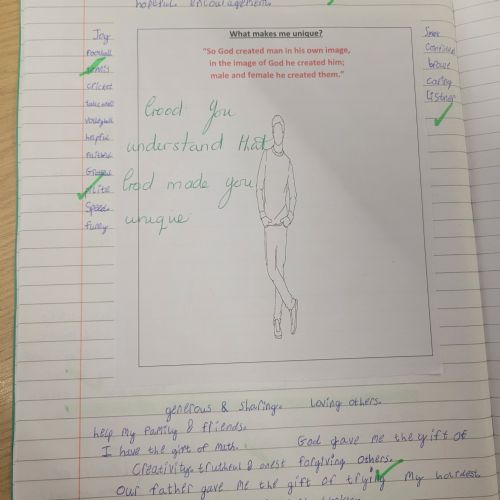 hopeful. encouragement.
What makes me unique?
"So God created man in his own image,
in the image of God he created him;
male and female he created them."
Joy
Football
tennis
cricket
volleyball
helpful
Faithful
Polite
Speed
funny
confident
brave
caring
listner
Good you
understand that
God made you
unique
generous & sharing. Loving others.
help my family & friends.
I have the gift of math. God gave me the gift of
Creativity. truthful & onest forgiving others.
Our father gave me the gift of trying my hardest